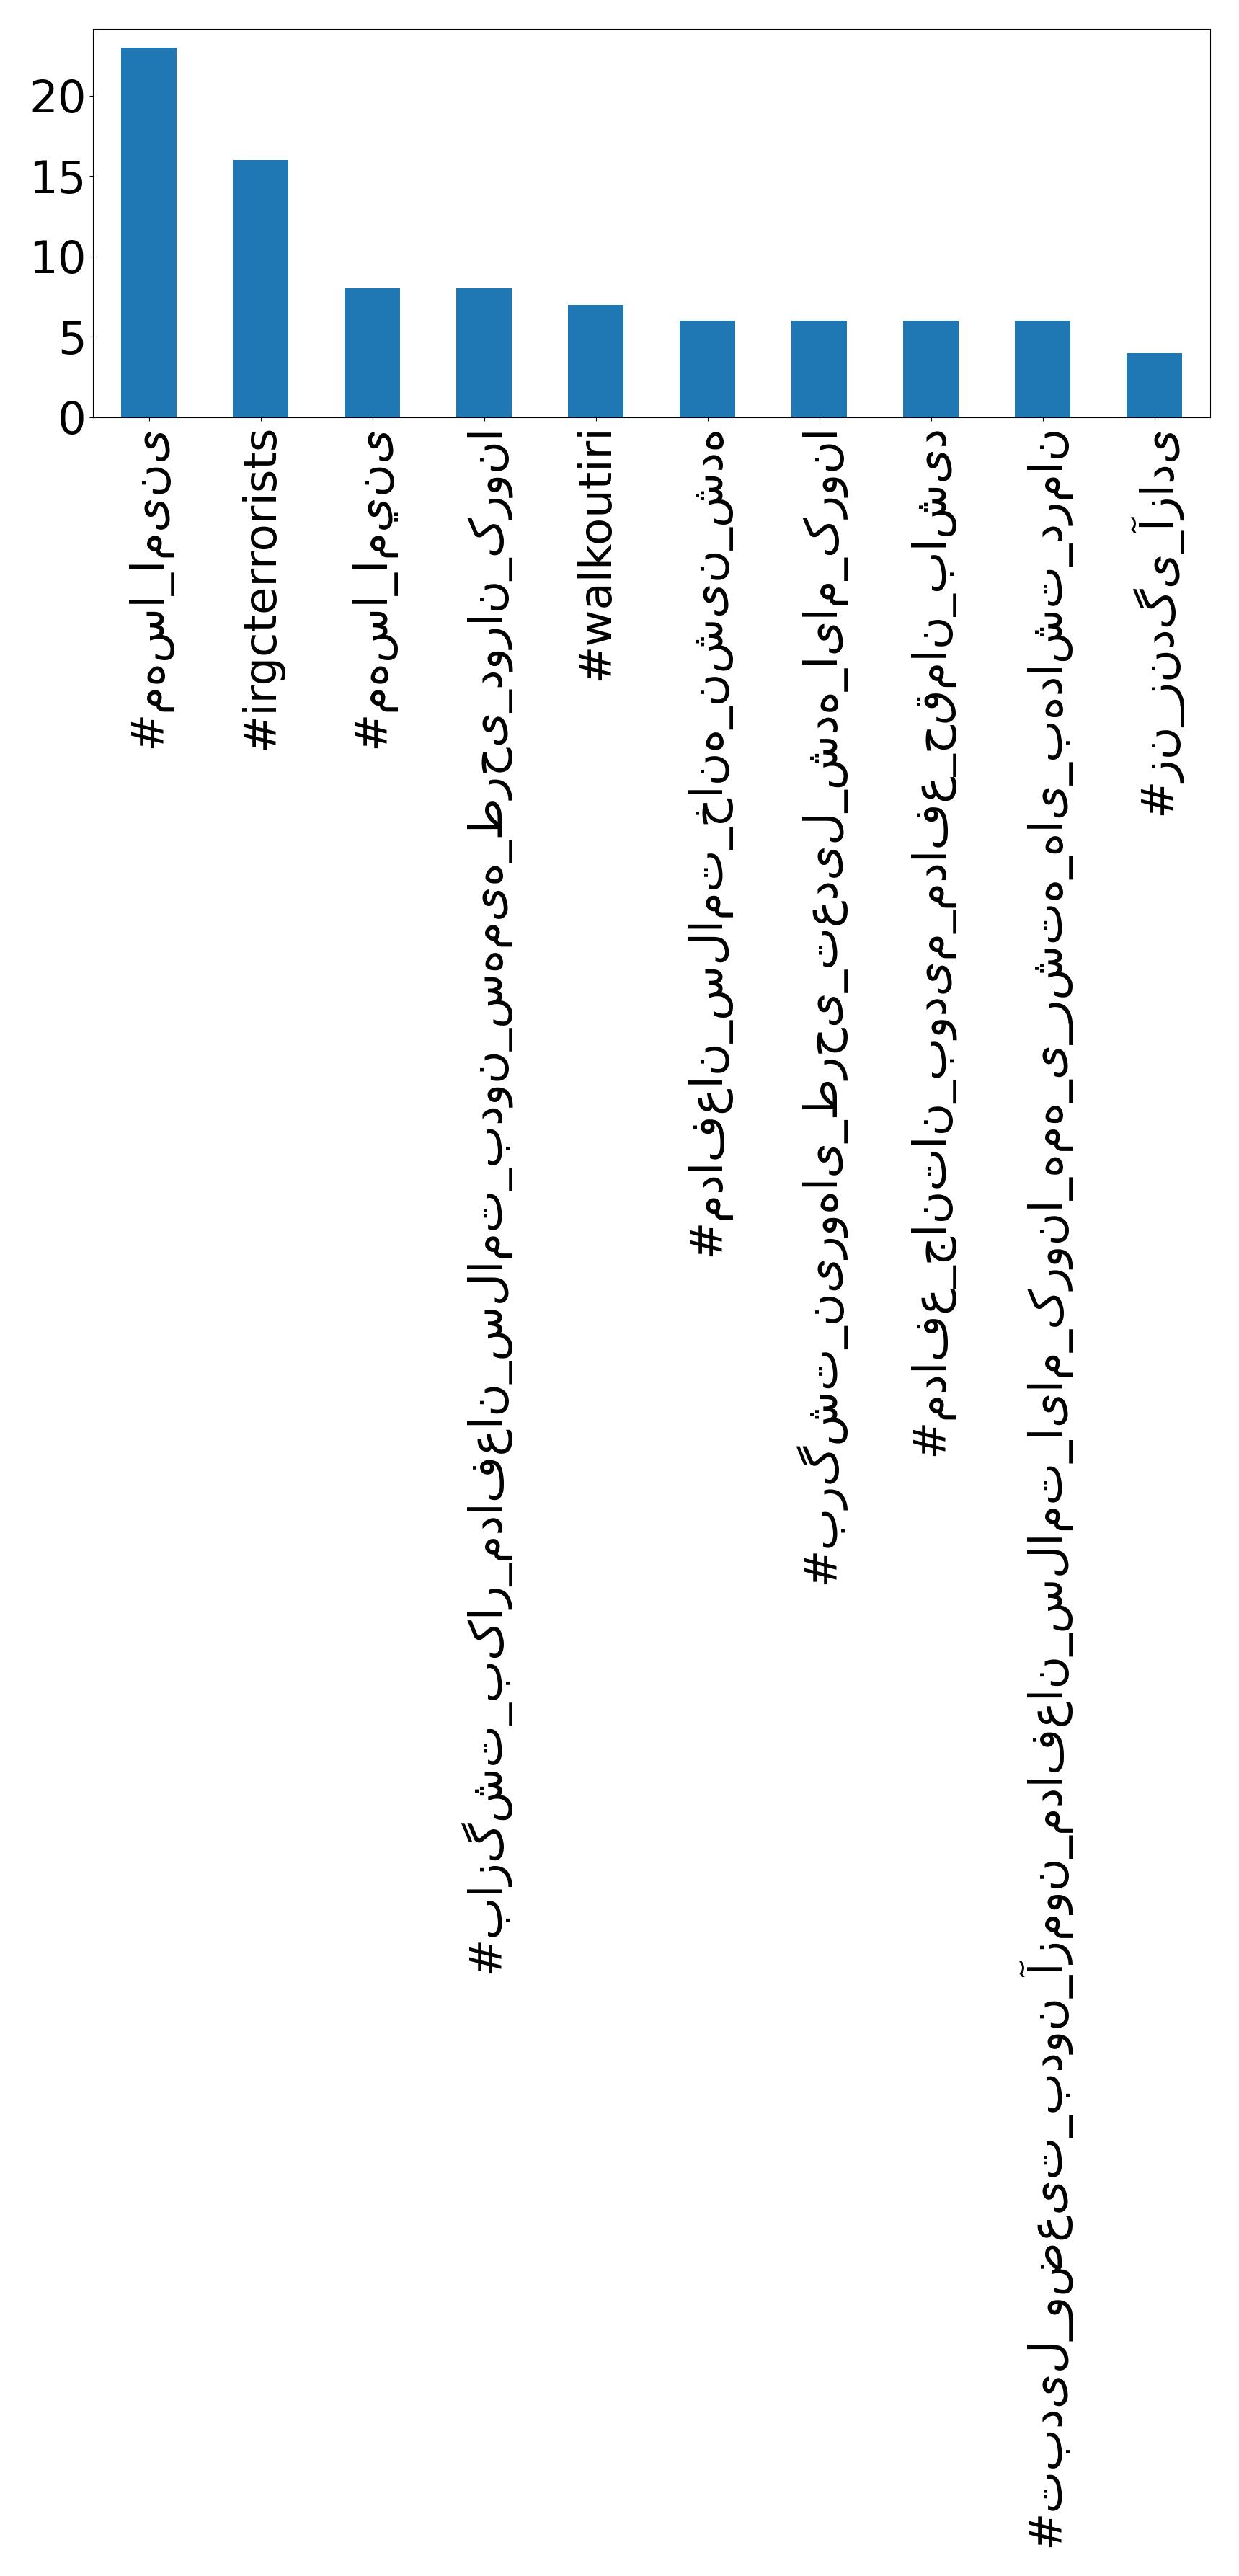 20
15
10
5
0
#مهسا_امینی
#irgcterrorists
#مهسا_امينی
#بازگشت_بکار_مدافعان_سلامت_بدون_سهمیه_طرحی_دوران_کرونا
#walkoutiri
#مدافعان_سلامت_خانه_نشین_شده
#برگشت_نیروهای_طرحی_تعدیل_شده_ایام_کرونا
#مدافع_جانتان_بودیم_مدافع_حقمان_باشید
#تبدیل_وضعیت_بدون_آزمون_مدافعان_سلامت_ایام_کرونا_همه_ی_رشته_های_بهداشت_درمان
#زن_زندگی_آزادی